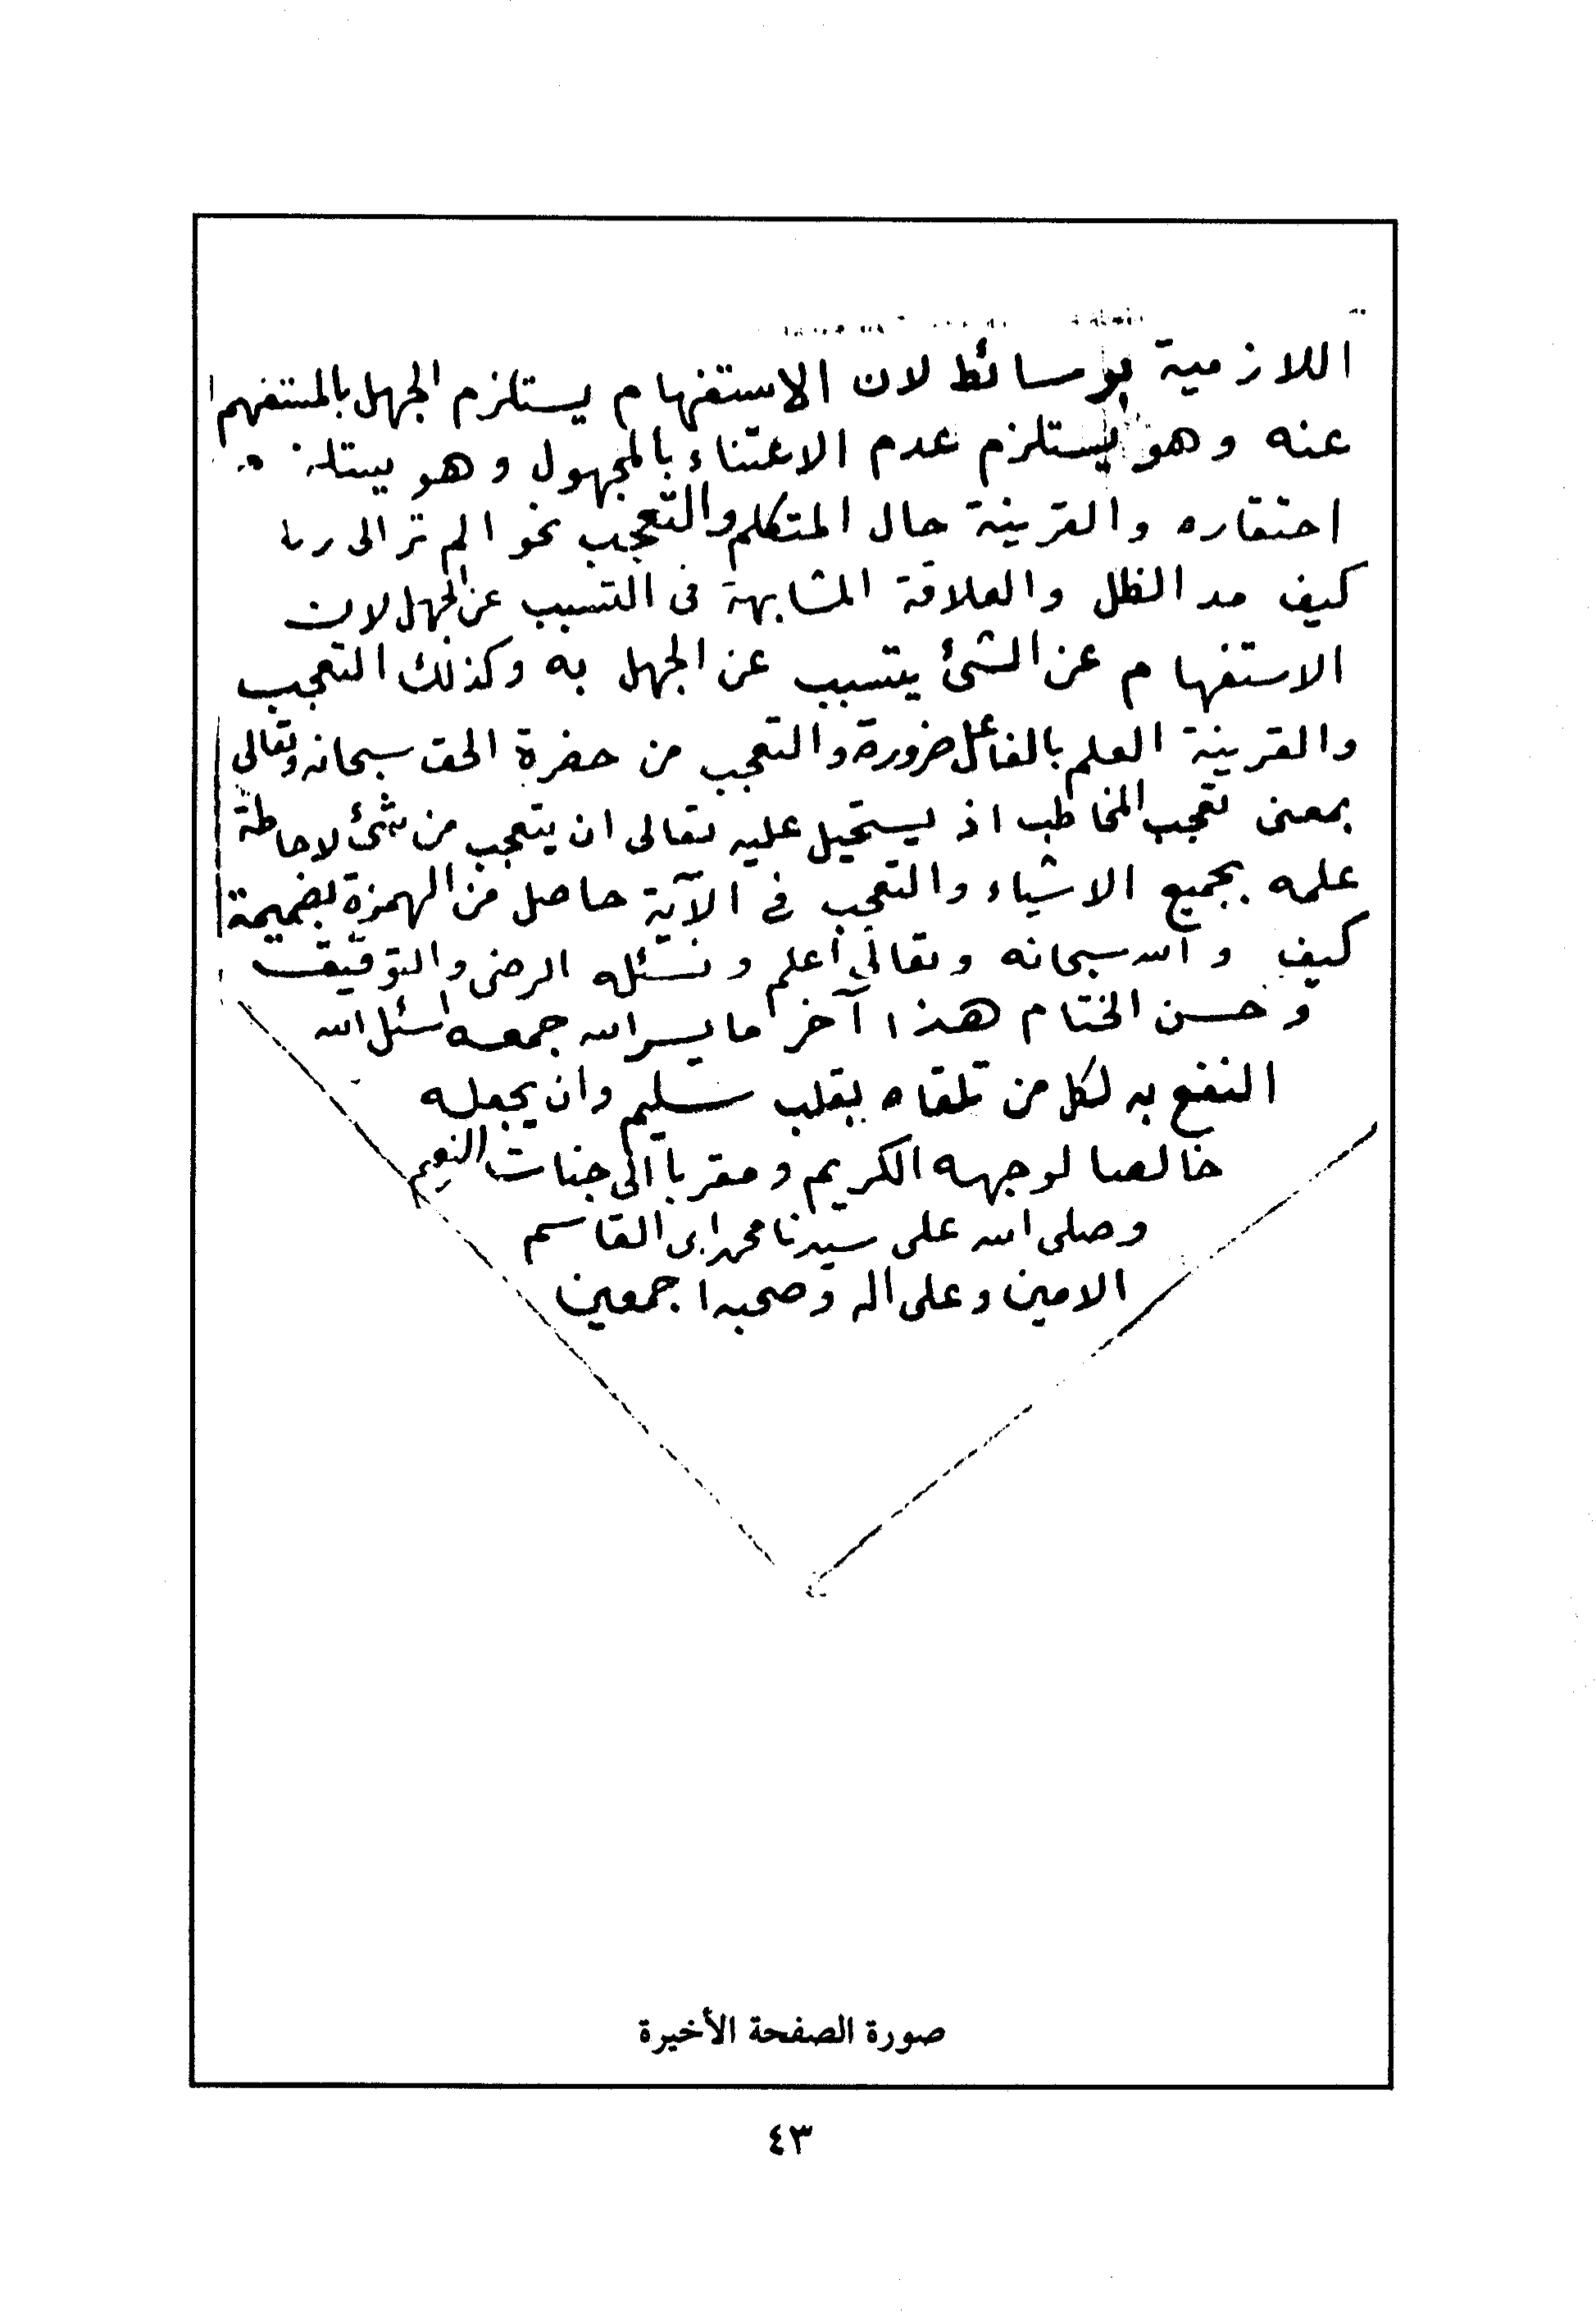 اللازمية بوسائط لان الاستفهام يستلزم الجهل بالمستفهم
عنه وهو يستلزم عدم الاعتناء بالمجهول وهو يستلزم
احتقاره والقرينة حال المتكلم والتعجب نحو الم تر الى ربك
كيف مد الظل والعلاقة المشابهة فى التسبب عن الجهل لان
الاستفهام عن الشئ يتسبب عن الجهل به وكذلك التعجب
والقرينة العلم بالفاعل ضرورة والتعجب من حضرة الحق سبحانه وتعالى
بمعنى تعجب المخاطب اذ يستحيل عليه تعالى ان يتعجب من شئ لاحاطة
علمه بجميع الاشياء والتعجب في الآية حاصل من الهمزة بضميمة
كيف والله سبحانه وتعالى أعلم ونسئله الرضى والتوفيق
وحسن الختام هذا آخر ما يسر الله جمعه اسئل الله
النفع به لكل من تلقاه بقلب سليم وان يجعله
خالصا لوجهه الكريم ومقربا الى جنات النعيم
وصلى الله على سيدنا محمد ابى القاسم
الامين وعلى اله وصحبه اجمعين
صورة الصفحة الأخيرة
٤٣